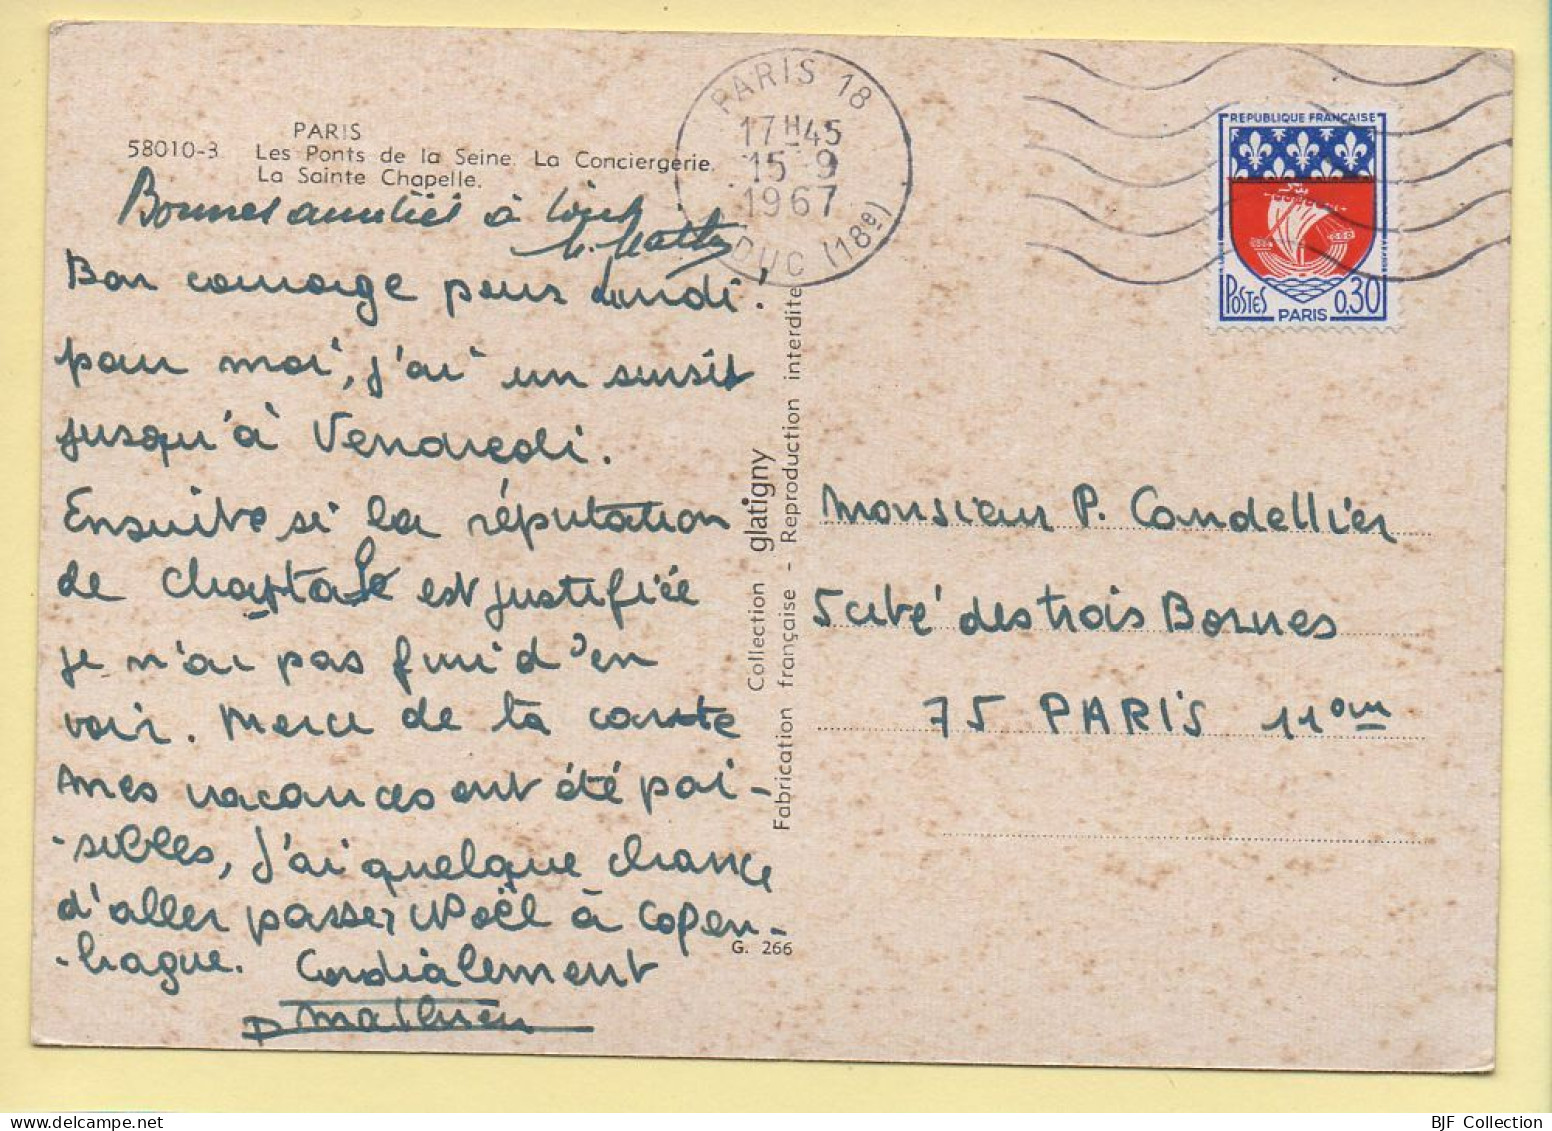 PARIS
58010-3 Les Ponts de la Seine. La Conciergerie.
La Sainte Chapelle.
Bonnes amitiés à
Bon courage pour Lundi !
pour moi, j'ai un sursit
jusqu'à Vendredi.
Ensuite si la réputation
de Chaptal est justifiée
je n'ai pas fini d'en
voir. Merci de ta carte
mes vacances ont été pai-
-sibles, j'ai quelque chance
d'aller passer Noël à Copen-
-hague. Cordialement
Mathieu
G. 266
Collection glatigny
Fabrication française - Reproduction interdite
PARIS 18
17H45
15-9
1967
DUC (18e)
REPUBLIQUE FRANÇAISE
POSTES PARIS 0,30
Monsieur P. Candellier
5 cité des trois Bornes
75 PARIS 11eme
BJF Collection